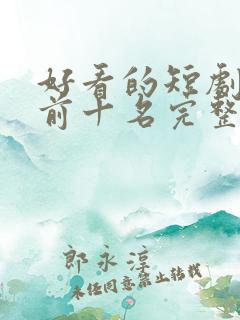 好看的短劇
前十名完整
郎永淳
未经同意禁止转载